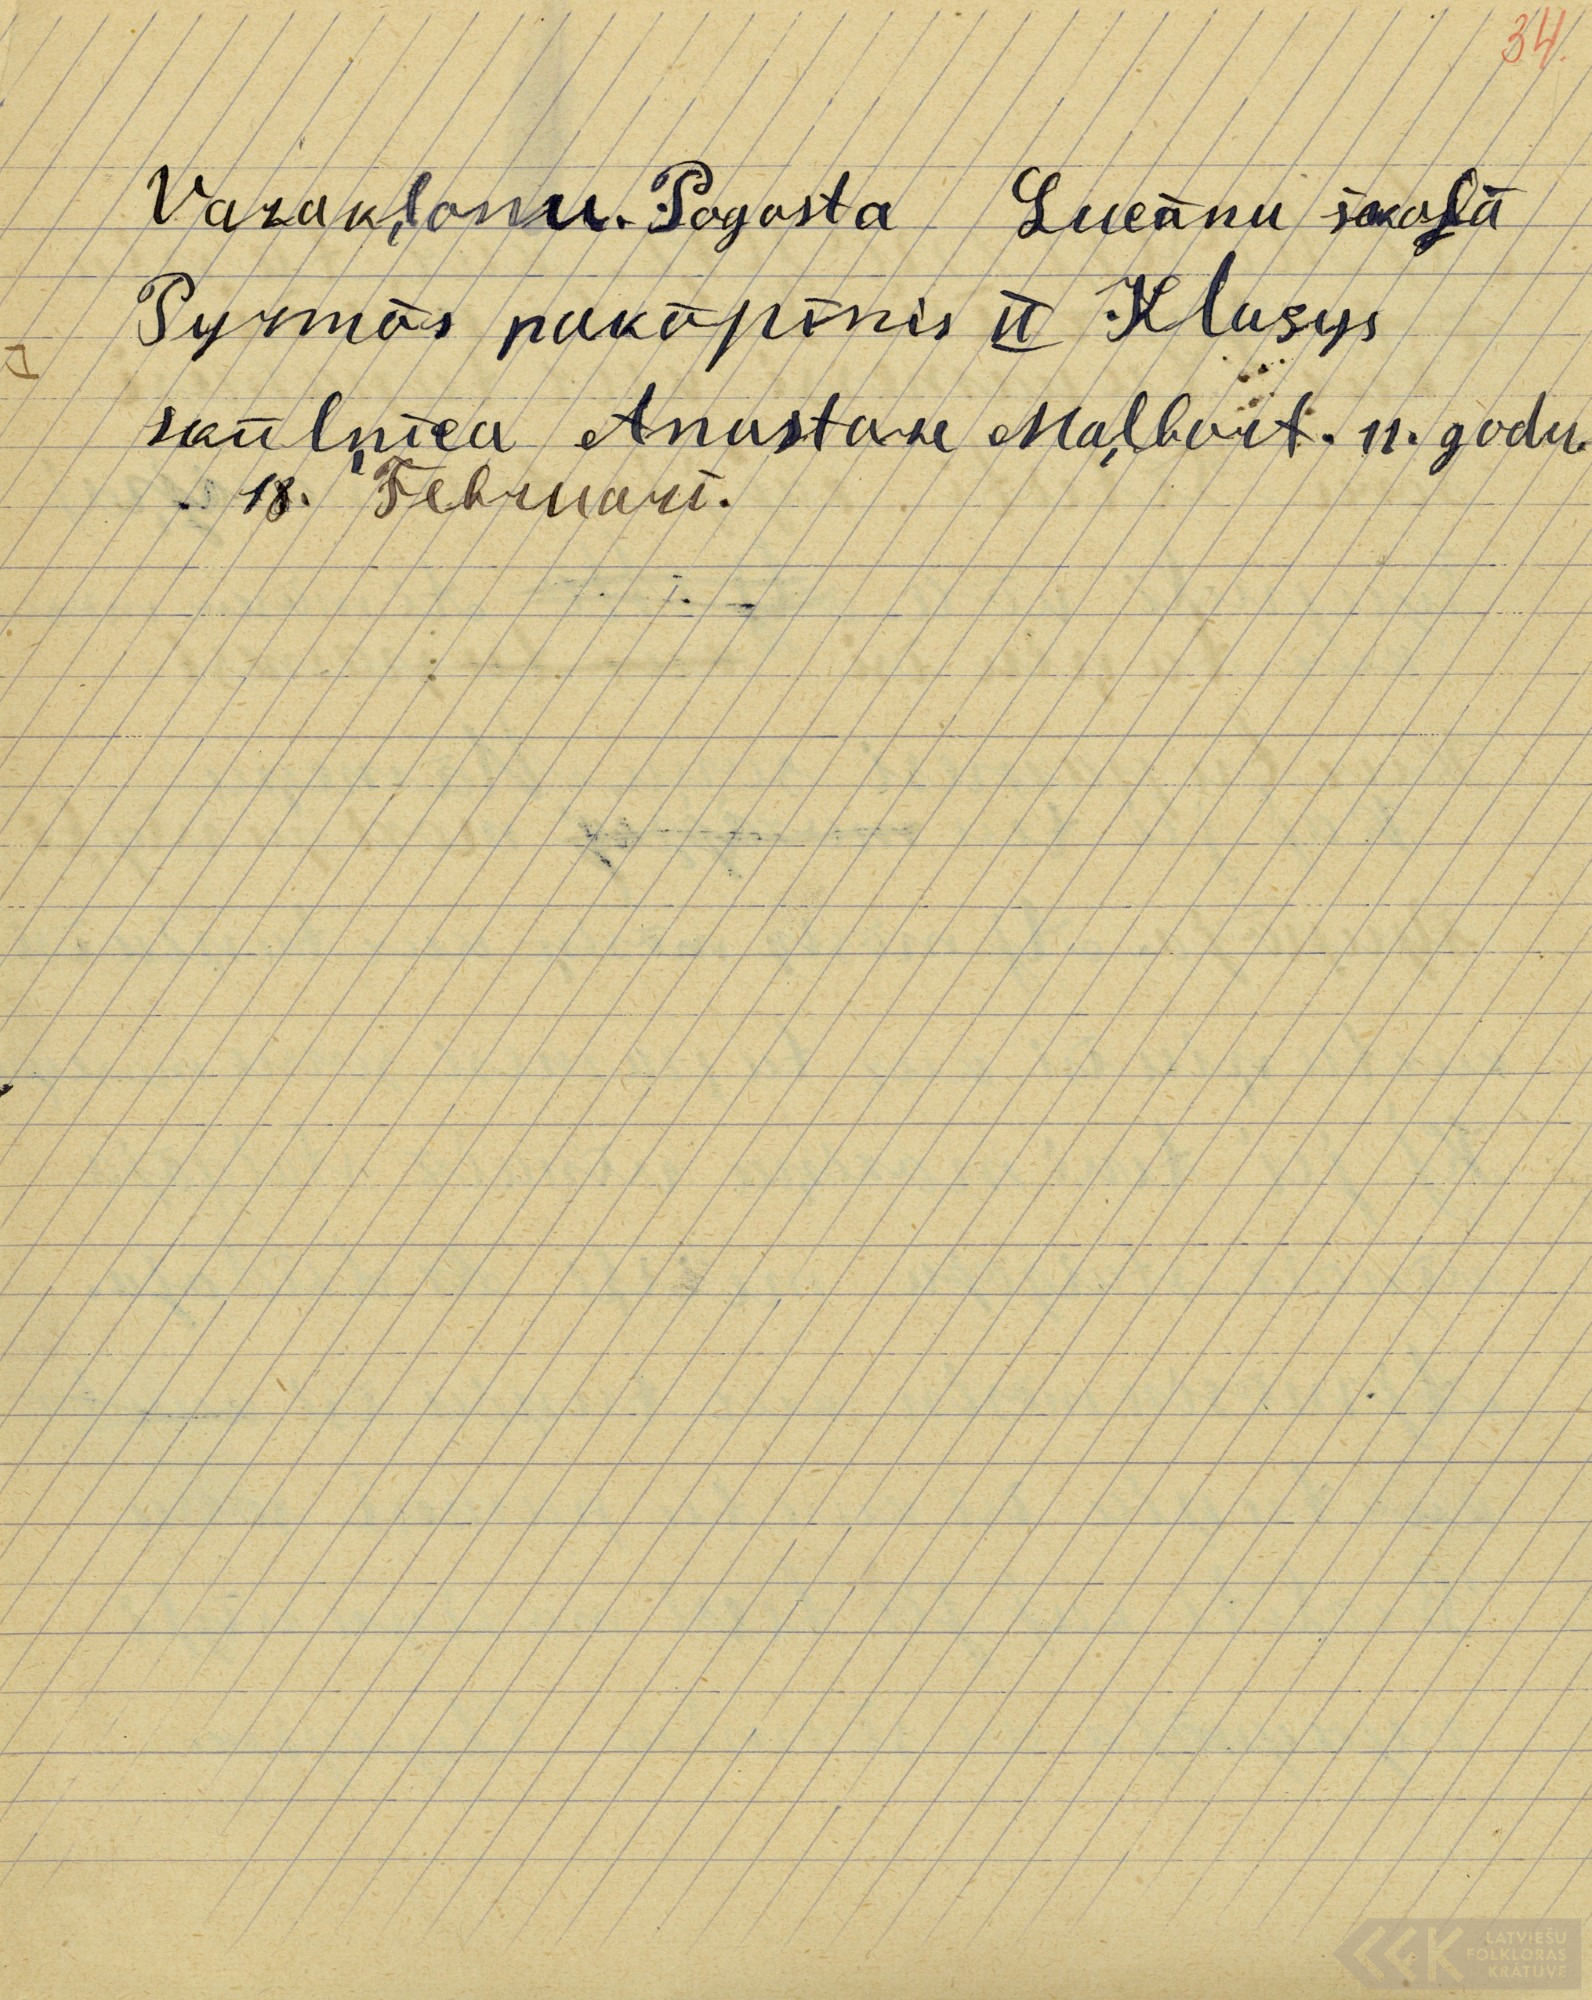 34.
Varakļonu. Pogosta Lucānu školā
Pyrmōs pakōpinis II Klasys
skūlņica Anastase Maļbort. 11. godu.
18. Februari.
LATVIEŠU
FOLKLORAS
KRĀTUVE